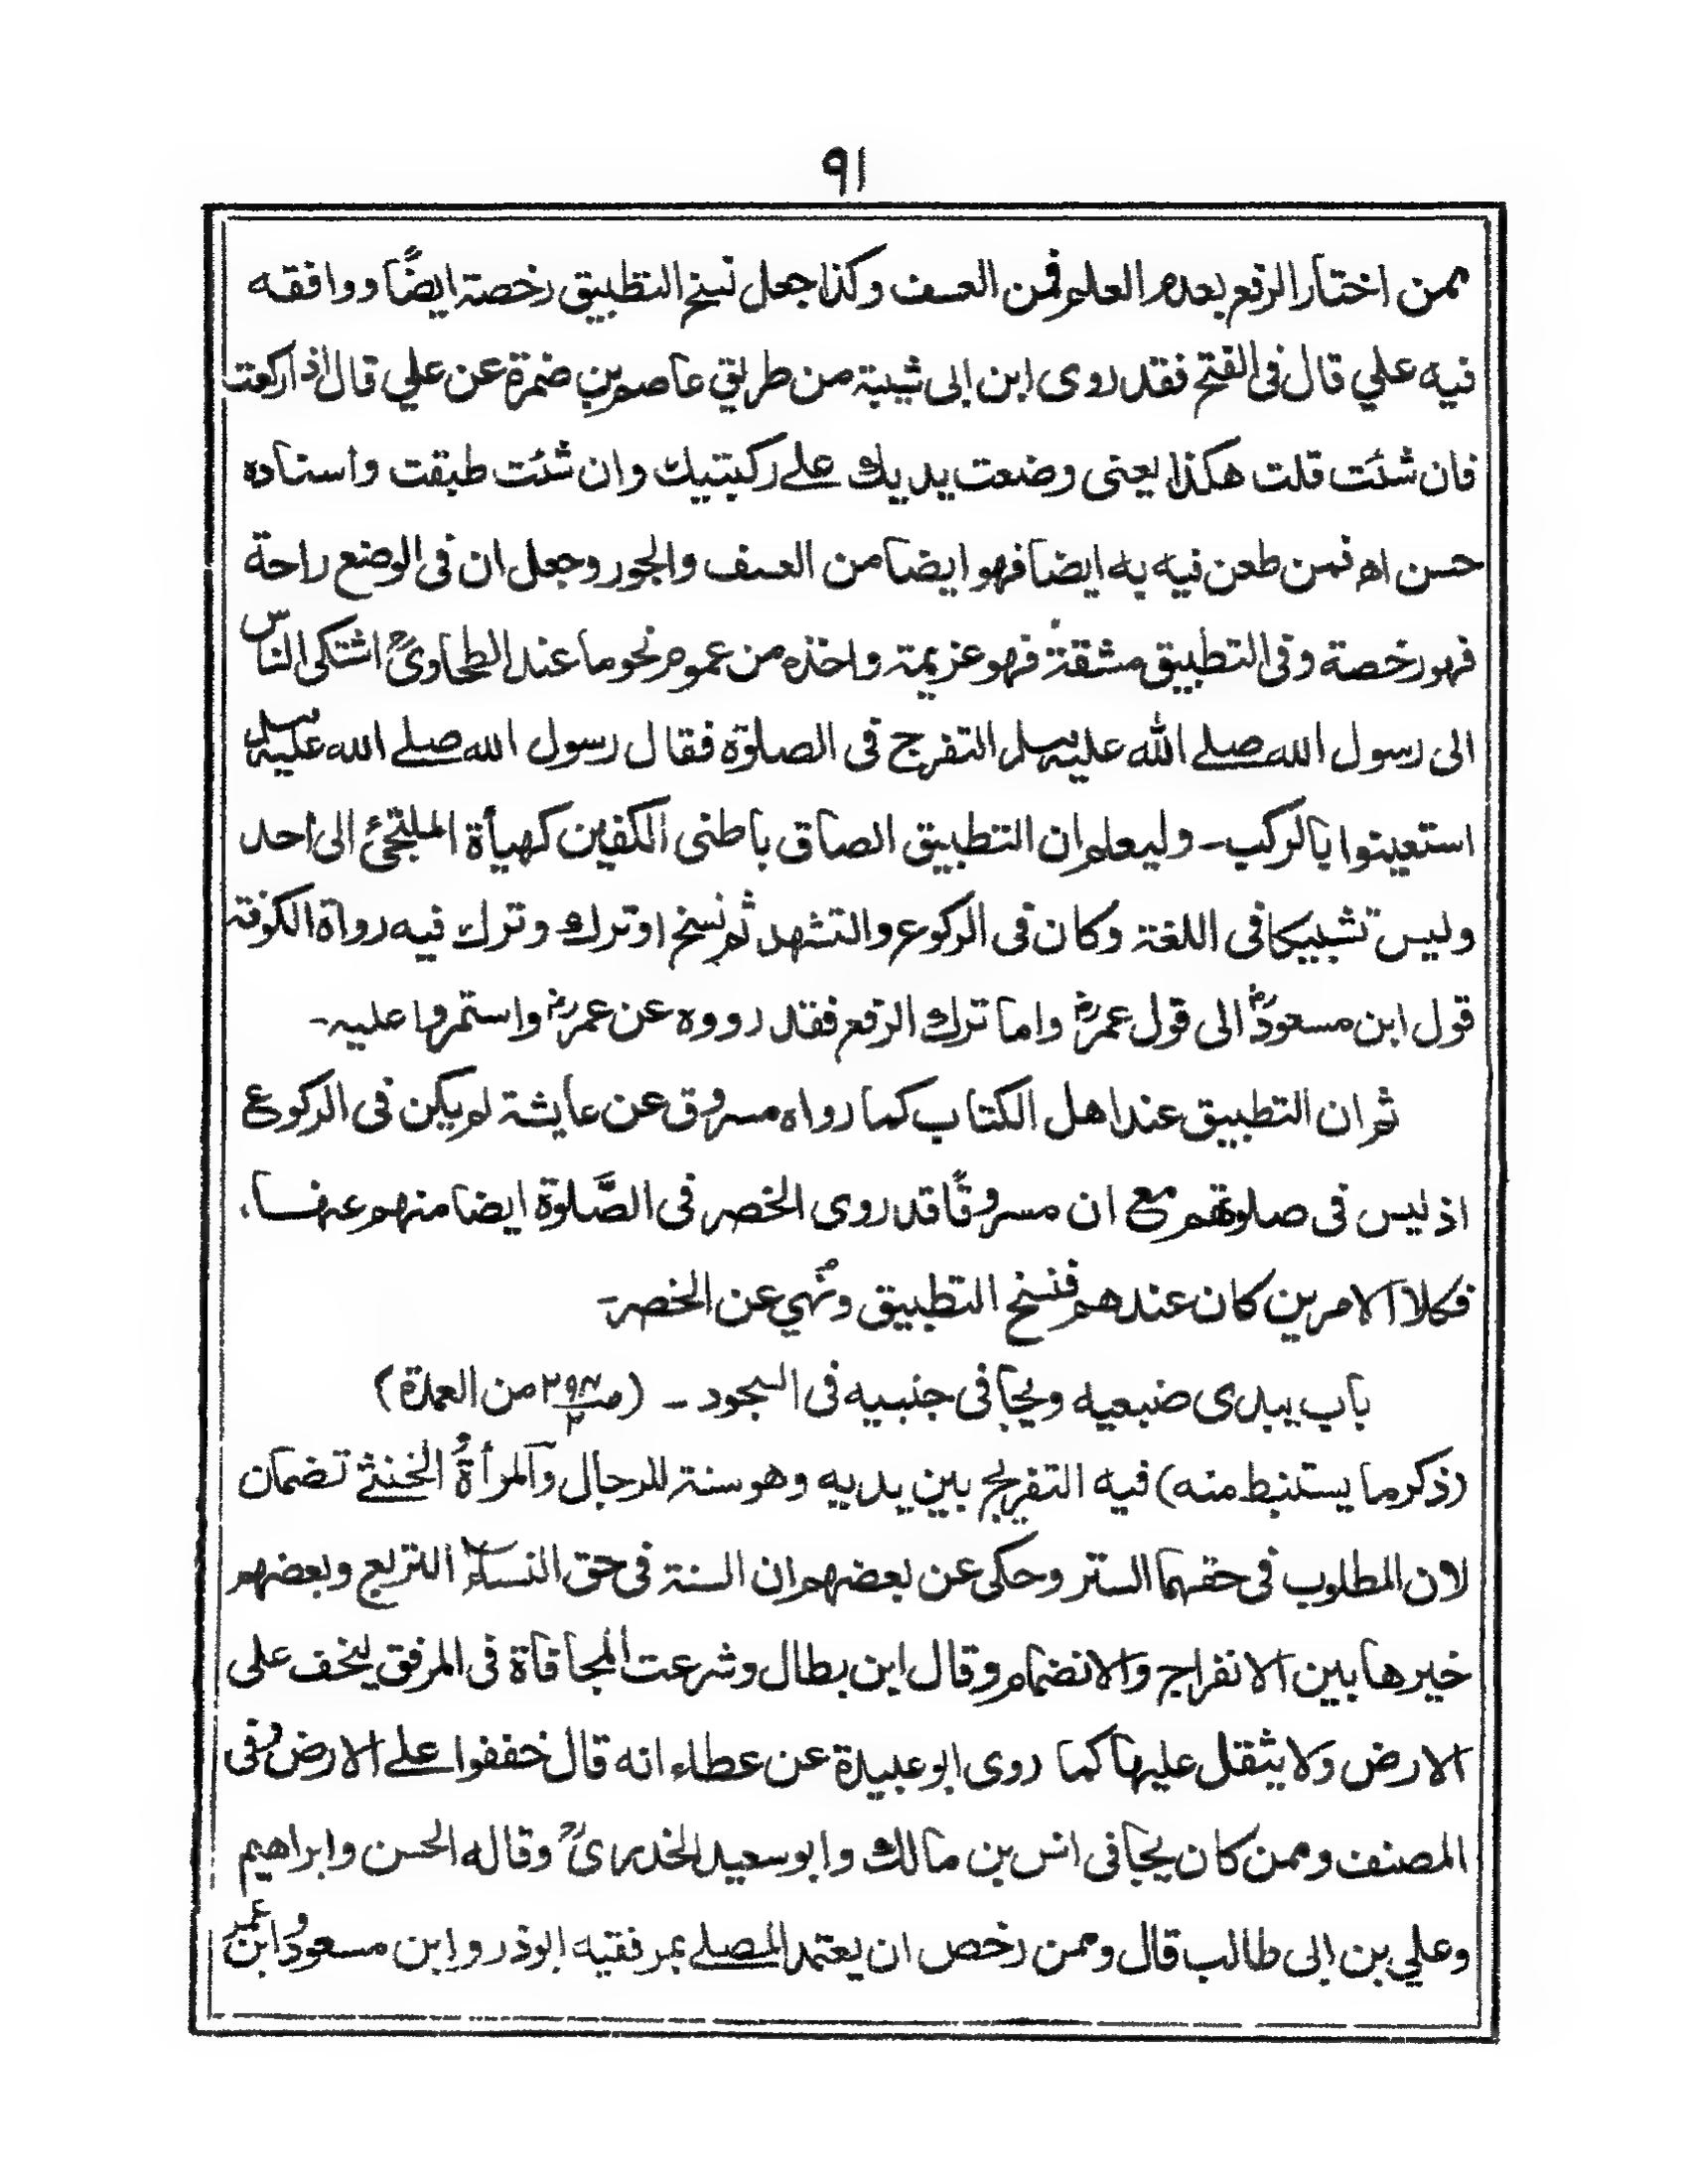 ٩١
ممن اختار الرفع بعدم العلم فمن العسف وكذا جعل نسخ التطبيق رخصة ايضًا ووافقه
فيه علي قال فى الفتح فقد روى ابن ابى شيبة من طريق عاصم بن ضمرة عن علي قال اذا ركعت
فان شئت قلت هكذا يعنى وضعت يديك على ركبتيك وان شئت طبقت واسناده
حسن اه فمن طعن فيه به ايضا فهو ايضا من العسف والجور وجعل ان فى الوضع راحة
فهو رخصة وفى التطبيق مشقة فهو عزيمة واخذه من عموم نحو ما عند الطحاويؒ اشتكى الناس
الى رسول الله صلے الله عليه وسلم التفرج فى الصلوة فقال رسول الله صلے الله عليه وسلم
استعينوا بالركب۔ وليعلم ان التطبيق الصاق باطنى الكفين كهيأة الملتجئ الى احد
وليس تشبيكا فى اللغة وكان فى الركوع والتشهد ثم نسخ او ترك وترك فيه رواة الكوفة
قول ابن مسعودؓ الى قول عمرؓ واما ترك الرفع فقد رووه عن عمرؓ واستمروا عليه۔
ثم ان التطبيق عند اهل الكتاب كما رواه مسروق عن عايشة لم يكن فى الركوع
اذ ليس فى صلوتهم مع ان مسروقًا قد روى الخصر فى الصَّلوة ايضا منهم عنها،
فكلا الامرين كان عندهم فنسخ التطبيق ونُهي عن الخصر۔
باب يبدى ضبعيه ويجافى جنبيه فى السجود ۔ (صـ من العمدة)
(ذكر ما يستنبط منه) فيه التفريج بين يديه وهو سنة للرجال والمرأة والخنثے تضمان
لان المطلوب فى حقهما الستر وحكى عن بعضهم ان السنة فى حق النساء التربع وبعضهم
خيرها بين الانفراج والانضمام وقال ابن بطال وشرعت المجافاة فى المرفق ليخف على
الارض ولا يثقل عليها كما روى ابو عبيدة عن عطاء انه قال خففوا علے الارض وفى
المصنف وممن كان يجافى انس بن مالك وابو سعيد الخدرىؓ وقاله الحسن وابراهيم
وعلي بن ابى طالب قال وممن رخص ان يعتمد المصلے بمرفقيه ابوذر وابن مسعود وابن عمر